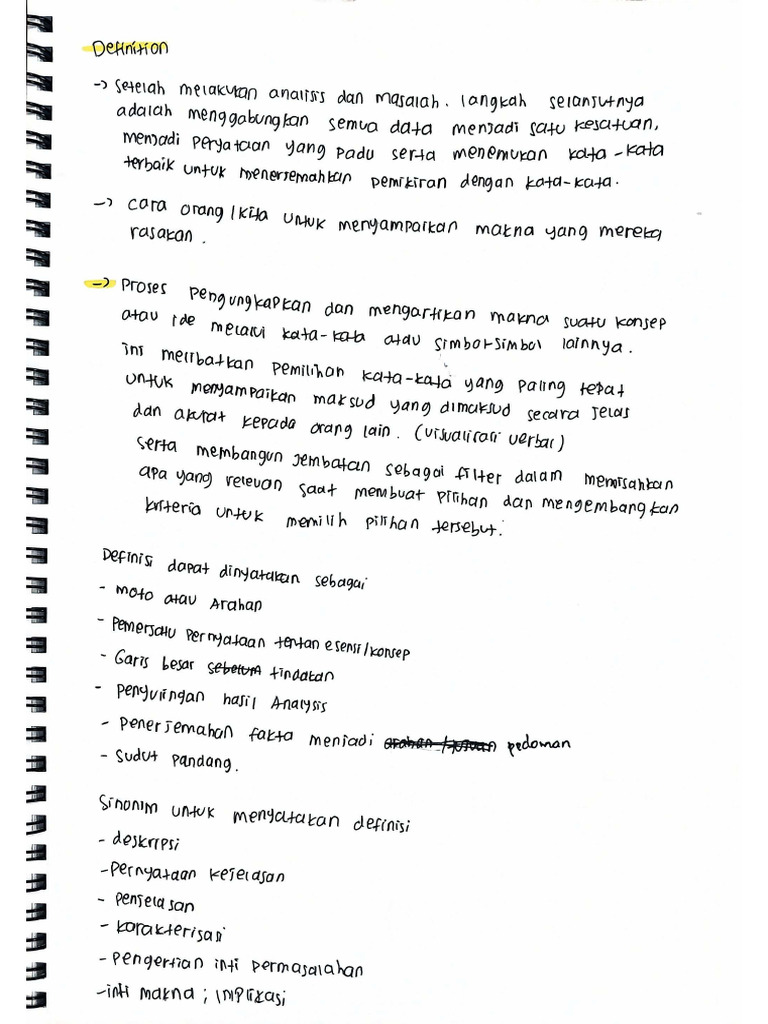 Definition
-> Setelah melakukan analisis dan masalah. langkah selanjutnya
adalah menggabungkan semua data menjadi satu kesatuan,
menjadi peryataan yang padu serta menemukan kata-kata
terbaik untuk menerjemahkan pemikiran dengan kata-kata.
-> cara orang/kita untuk menyampaikan makna yang mereka
rasakan.
-> Proses pengungkapkan dan mengartikan makna suatu konsep
atau ide melalui kata-kata atau simbol-simbol lainnya.
ini melibatkan pemilihan kata-kata yang paling tepat
untuk menyampaikan maksud yang dimaksud secara jelas
dan akurat kepada orang lain. (visualisasi verbal)
serta membangun jembatan sebagai filter dalam memisahkan
apa yang relevan saat membuat pilihan dan mengembangkan
kriteria untuk memilih pilihan tersebut.
Definisi dapat dinyatakan sebagai
- moto atau Arahan
- Pemersatu pernyataan tentan esensi/konsep
- Garis besar sebelum tindakan
- Penyulingan hasil Analysis
- Penerjemahan fakta menjadi pedoman
- Sudut pandang.
Sinonim untuk menyatakan definisi
- deskripsi
- Pernyataan kejelasan
- penjelasan
- karakterisasi
- pengertian inti permasalahan
- inti makna ; implikasi